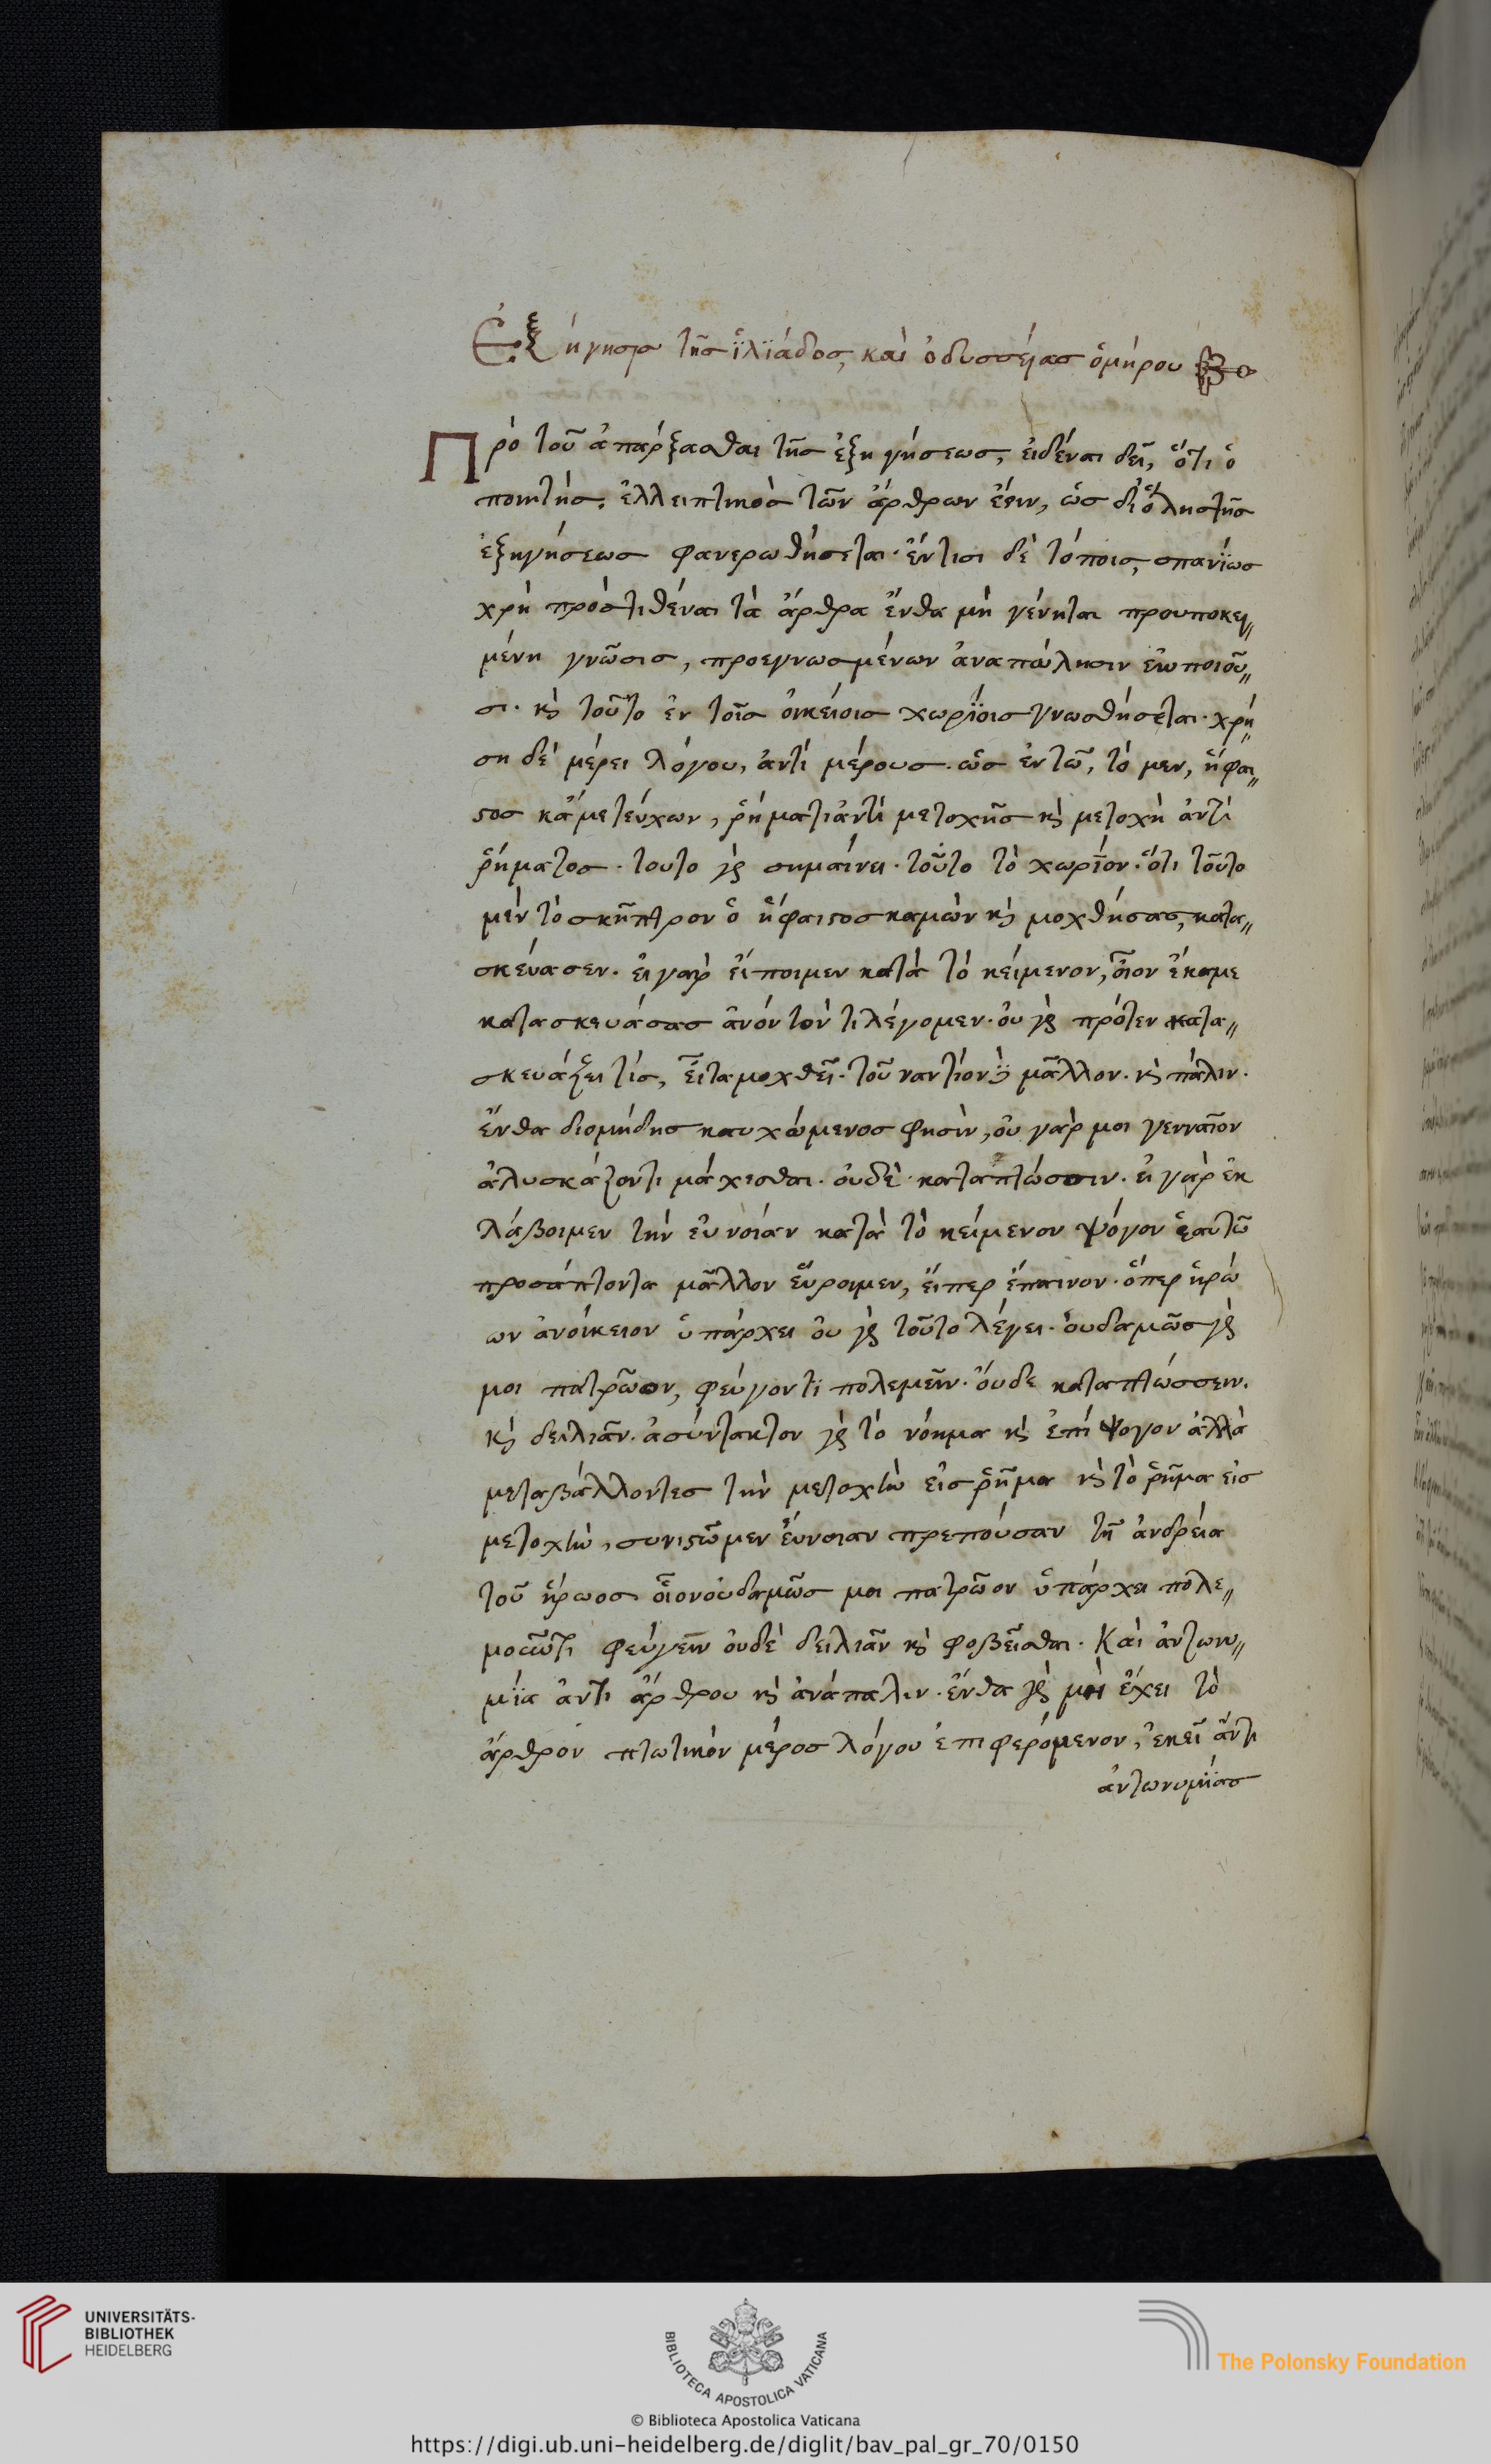 Ἐξήγησις τῆς ἰλϊάδος, καὶ ὀδυσσείας ὁμήρου
Πρὸ τοῦ ἀπάρξασθαι τῆς ἐξηγήσεως, εἰδέναι δεῖ, ὅτι ὁ
ποιητής, ἐλλειπτικὸς τῶν ἄρθρων ἐστιν, ὡς δι' ὅλης τῆς
ἐξηγήσεως φανερωθήσεται· ἔν τισι δὲ τόποις, σπανίως
χρὴ προστιθέναι τὰ ἄρθρα ἔνθα μὴ γένηται προυποκει„
μένη γνῶσις, προεγνωσμένων ἀναπώλησιν ποιοῦ„
σι· κὶ τοῦτο ἐν τοῖς οἰκείοις χωρίοις γνωσθήσεται· χρή„
ση δὲ μέρει λόγου, ἀντὶ μέρους· ὡς ἐν τῶ, τὸ μεν, ἥφαι„
στος κάμε τεύχων, ῥήματι ἀντὶ μετοχῆς κὶ μετοχὴ ἀντὶ
ῥήματος· τουτο γὰρ σημαίνει· τοῦτο τὸ χωρίον· ὅτι τοῦτο
μὲν τὸ σκῆπτρον ὁ ἥφαιστος καμὼν κὶ μοχθήσας, κατα„
σκεύασεν· εἰ γαρ εἴποιμεν κατὰ τὸ κείμενον, οἷον ἔκαμε
κατασκευάσας ἀνόντόν τι λέγομεν· οὐ γὰρ πρότεν κατα„
σκευάζει τίς, εἶτα μοχθεῖ· τοῦναντίον δὲ μᾶλλον· κὶ πάλιν·
ἔνθα διομήδης καυχώμενος φησὶν, οὐ γάρ μοι γενναῖον
ἀλυσκάζοντι μάχεσθαι· οὐδὲ καταπτώσσιν· εἰ γὰρ ἐκ
λάβοιμεν τὴν εὐνοίαν κατὰ τὸ κείμενον ψόγον ἑαυτῶ
προσάπτοντα μᾶλλον εὕροιμεν, εἴπερ ἔπαινον· ὅπερ ἡρώ
ων ἀνοίκειον ὑπάρχει οὐ γὰρ τοῦτο λέγει· οὐδαμῶς γὰρ
μοι πατρῶον, φεύγοντι πολεμεῖν· οὔδε καταπτώσσειν·
κὶ δειλιᾶν· ἀσύντακτον γὰρ τὸ νόημα κὶ ἐπὶ ψογον ἀλλὰ
μεταβάλλοντες τὴν μετοχὴν εἰς ῥῆμα κὶ τὸ ῥῆμα εἰς
μετοχὴν, συνιστῶμεν εὔνοιαν πρεπούσαν τῆ ἀνδρεία
τοῦ ἥρωος οἷον οὐδαμῶς μοι πατρῶον ὑπάρχει πολε„
φεύγειν οὐδὲ δειλιᾶν κὶ φοβεῖσθαι· Καὶ ἀντωνυ„
μία ἀντι ἄρθρου κὶ ἀνάπαλιν· ἔνθα γὰρ μὴ ἔχει τὸ
ἄρθρον πτωτικὸν μέρος λόγου ἐπιφερόμενον, ἐκεῖ ἄντι
ἀντωνυμίας
UNIVERSITÄTS-
BIBLIOTHEK
HEIDELBERG
BIBLIOTECA APOSTOLICA VATICANA
The Polonsky Foundation
© Biblioteca Apostolica Vaticana
https://digi.ub.uni-heidelberg.de/diglit/bav_pal_gr_70/0150